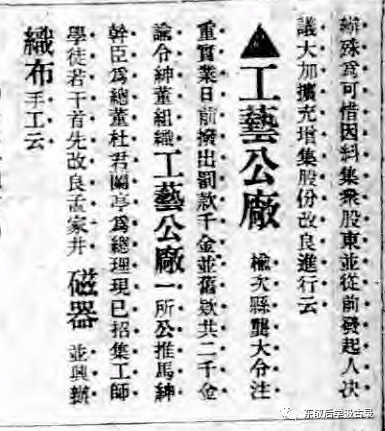 辦殊爲可惜因糾集衆股東並從前發起人决
議大加擴充增集股份改良進行云
▲工藝公廠 榆次縣龔大令注
重實業日前撥出罰款千金並舊欵共二千金
諭令紳董組織工藝公廠一所公推馬紳
幹臣爲總董杜君闢亭爲總理現已招集工師
學徒若干首先改良孟家井 磁器 並興辦
織布手工云
东祝后学汲古录